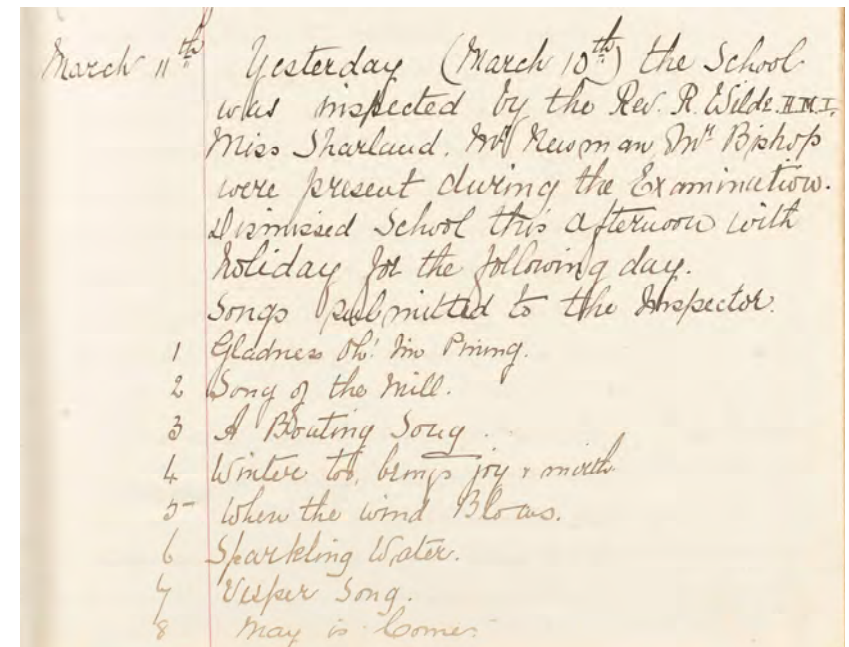 March 11th Yesterday (March 10th) the School
was inspected by the Rev. R. Wilde. H.M.I.
Miss Sharland. Mr Newman Mr Bishop
were present during the Examination.
Dismissed School this afternoon with
holiday for the following day.
Songs submitted to the Inspector.
1 Gladness Oh! I'm Pining.
2 Song of the Mill.
3 A Boating Song.
4 Winter too, brings joy & mirth
5 When the wind Blows.
6 Sparkling Water.
7 Vesper Song.
8 May is Come.